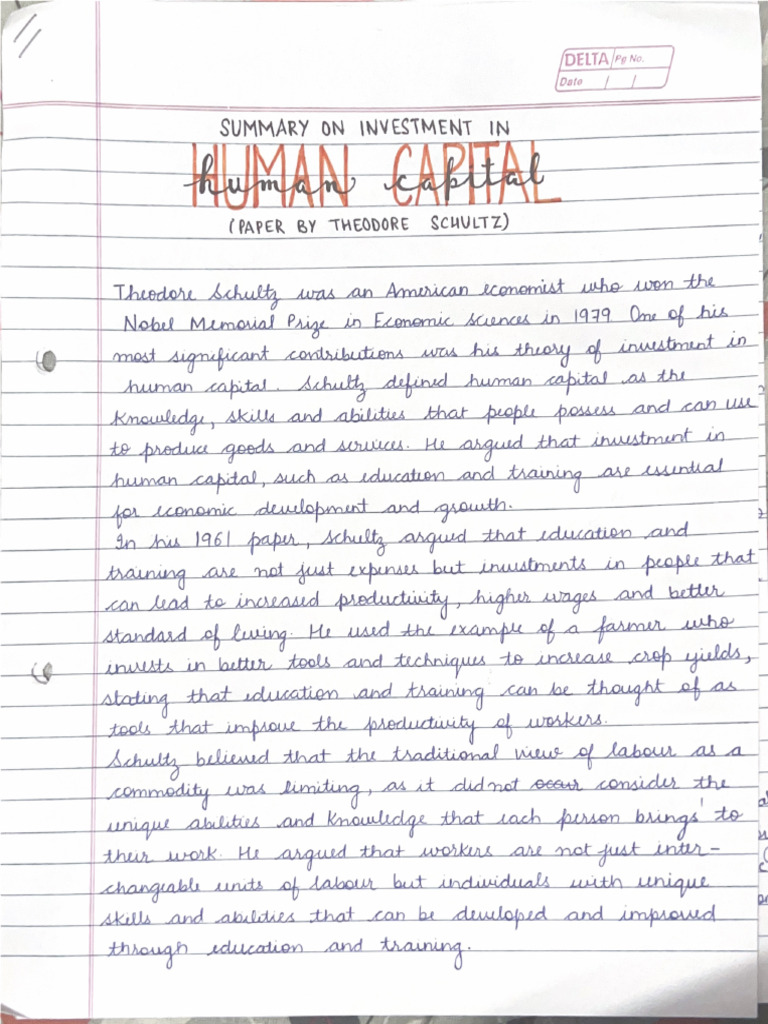 DELTA Pg No.
Date / /
SUMMARY ON INVESTMENT IN
HUMAN CAPITAL
human capital
(PAPER BY THEODORE SCHULTZ)
Theodore Schultz was an American economist who won the
Nobel Memorial Prize in Economic Sciences in 1979 One of his
most significant contributions was his theory of investment in
human capital. Schultz defined human capital as the
knowledge, skills and abilities that people possess and can use
to produce goods and services. He argued that investment in
human capital, such as education and training are essential
for economic development and growth.
In his 1961 paper, Schultz argued that education and
training are not just expenses but investments in people that
can lead to increased productivity, higher wages and better
standard of living. He used the example of a farmer who
invests in better tools and techniques to increase crop yields,
stating that education and training can be thought of as
tools that improve the productivity of workers.
Schultz believed that the traditional view of labour as a
commodity was limiting, as it did not occur consider the
unique abilities and knowledge that each person brings to
their work. He argued that workers are not just inter-
changeable units of labour but individuals with unique
skills and abilities that can be developed and improved
through education and training.